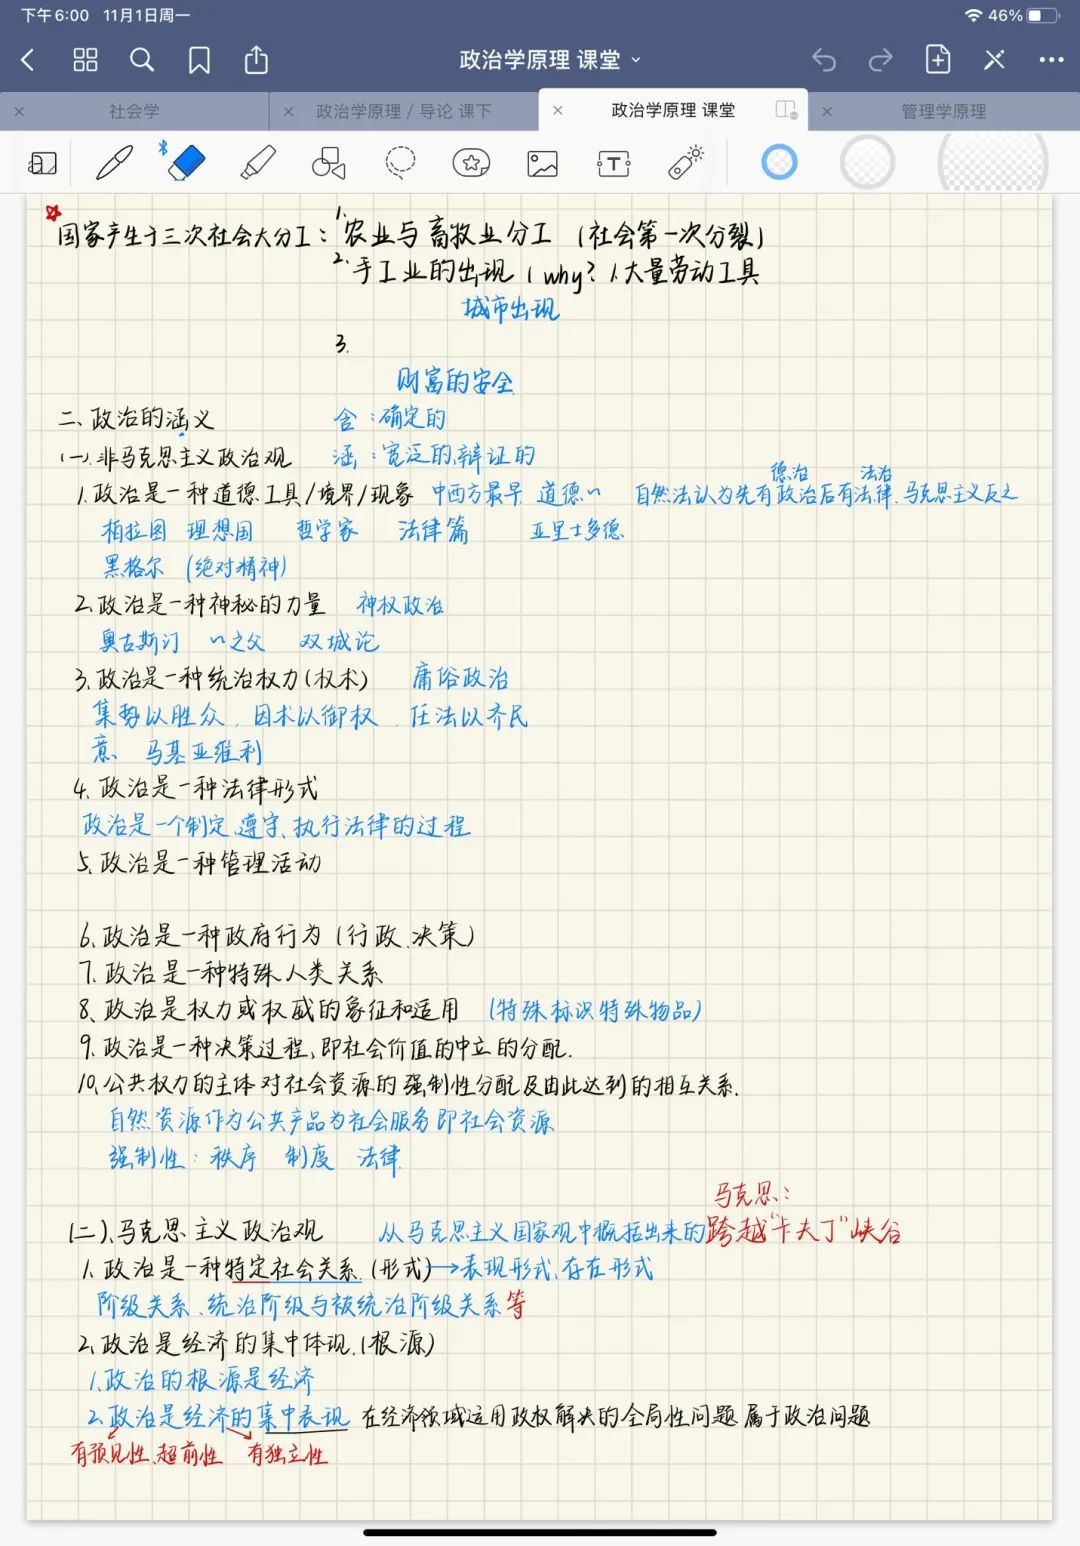 下午6:00 11月1日周一 46%
政治学原理 课堂
社会学 政治学原理 / 导论 课下 政治学原理 课堂 管理学原理
国家产生于三次社会大分工：1.农业与畜牧业分工（社会第一次分裂）
2.手工业的出现（why？1.大量劳动工具
城市出现
3.
财富的安全
二、政治的涵义 含：确定的
(一).非马克思主义政治观 涵：宽泛的、辩证的
德治 法治
1.政治是一种道德工具/境界/现象 中西方最早 道德〃 自然法认为先有政治后有法律.马克思主义反之
柏拉图 理想国 哲学家 法律篇 亚里士多德
黑格尔（绝对精神）
2.政治是一种神秘的力量 神权政治
奥古斯汀 〃之父 双城论
3.政治是一种统治权力（权术） 庸俗政治
集势以胜众、因术以御权、任法以齐民
意、马基亚维利
4.政治是一种法律形式
政治是一个制定、遵守、执行法律的过程
5.政治是一种管理活动
6.政治是一种政府行为（行政、决策）
7.政治是一种特殊人类关系
8.政治是权力或权威的象征和运用 （特殊标识特殊物品）
9.政治是一种决策过程,即社会价值的中立的分配.
10.公共权力的主体对社会资源的强制性分配及由此达到的相互关系.
自然资源作为公共产品为社会服务即社会资源
强制性：秩序 制度 法律
马克思：
(二).马克思主义政治观 从马克思主义国家观中概括出来的 跨越“卡夫丁”峡谷
1.政治是一种特定社会关系.（形式）→表现形式、存在形式
阶级关系、统治阶级与被统治阶级关系等
2.政治是经济的集中体现.（根源）
1.政治的根源是经济
2.政治是经济的集中表现 在经济领域运用政权解决的全局性问题属于政治问题
有预见性、超前性 有独立性